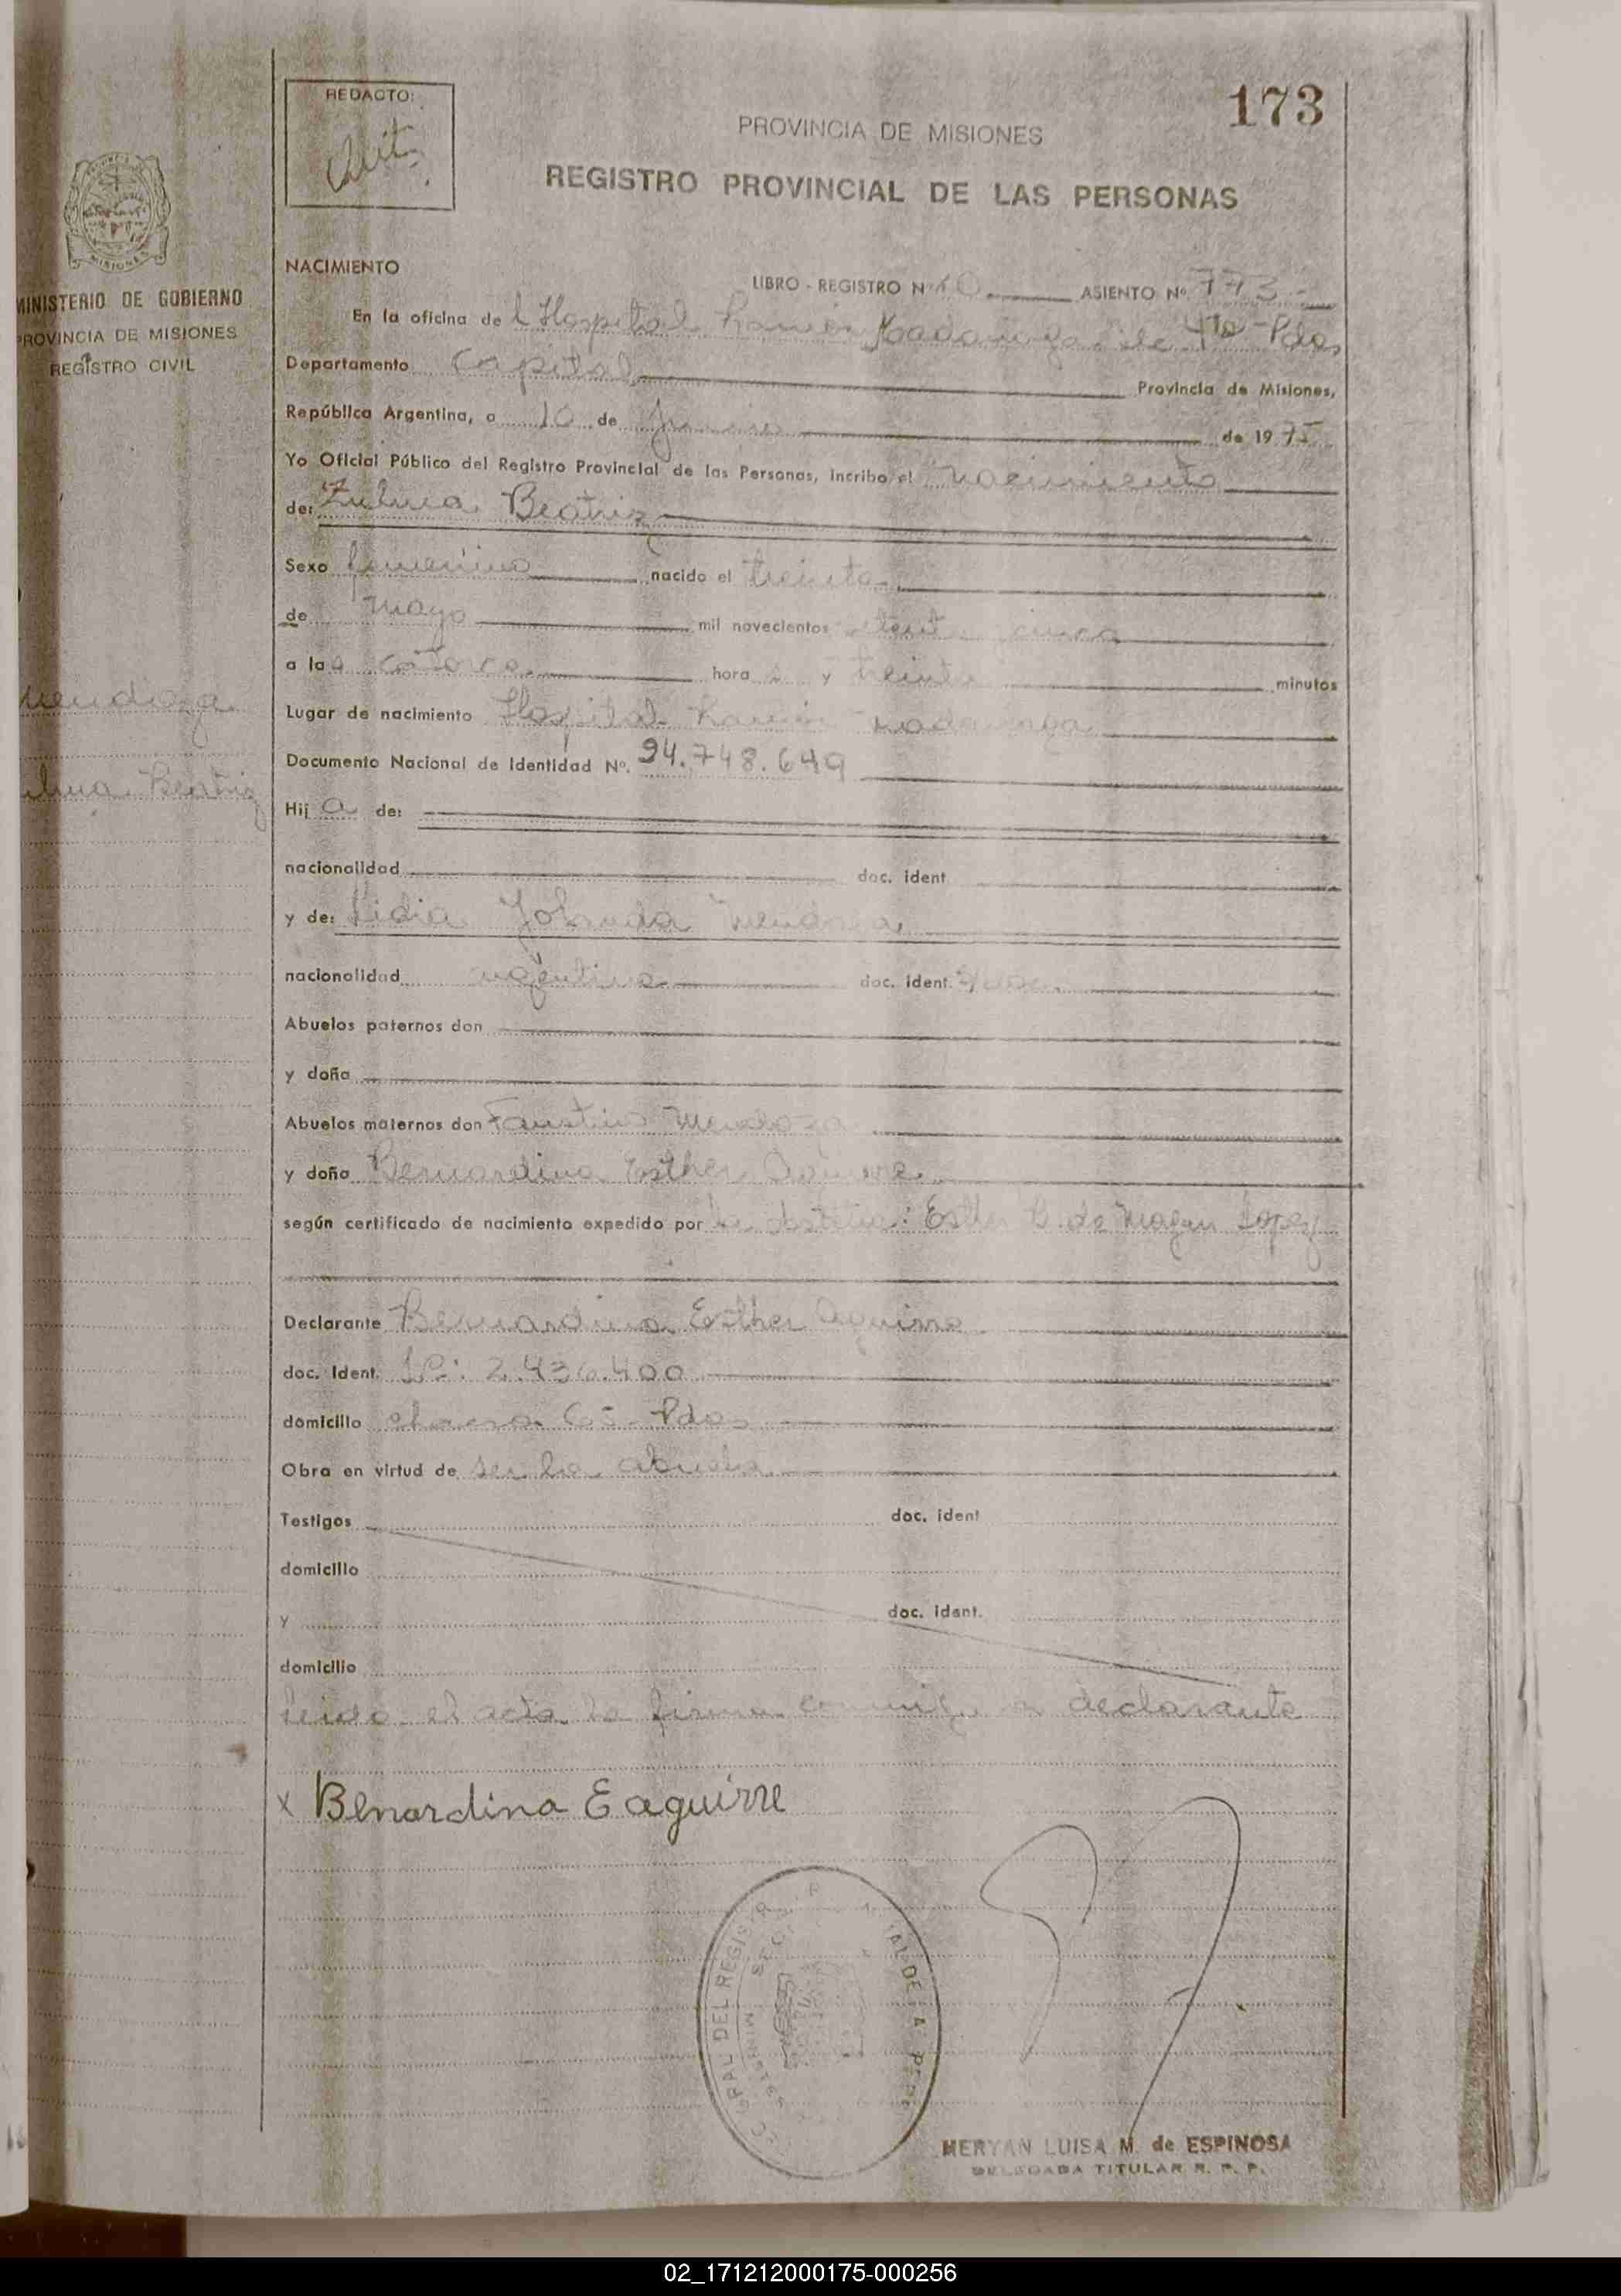 173
REDACTO:
PROVINCIA DE MISIONES
REGISTRO PROVINCIAL DE LAS PERSONAS
MINISTERIO DE GOBIERNO
PROVINCIA DE MISIONES
REGISTRO CIVIL
NACIMIENTO
LIBRO - REGISTRO Nº ASIENTO Nº
En la oficina del Hospital Ramón Madariaga de Pdas
Departamento Capital Provincia de Misiones,
República Argentina, a 10 de junio de 1975
Yo Oficial Público del Registro Provincial de las Personas, incribo el nacimiento
de: Zulma Beatriz
Sexo femenino nacido el treinta
de mayo mil novecientos setenta cinco
a las catorce horas y treinta minutos
mendoza
Lugar de nacimiento Hospital Ramón Madariaga
Documento Nacional de Identidad Nº. 24.748.649
Zulma Beatriz
Hija de:
nacionalidad doc. ident.
y de: Lidia Yolanda Mendoza
nacionalidad argentina doc. ident.
Abuelos paternos don
y doña
Abuelos maternos don Faustino Mendoza
y doña Bernardina Esther Aguirre
según certificado de nacimiento expedido por la Esther B. de Lopez
Declarante Bernardina Esther Aguirre
doc. Ident. 2.436.400
domicilio chacra 65 Pdas
Obra en virtud de ser la abuela
Testigos doc. ident
domicilio
y doc. ident.
domicilio
Leido el acta la firma conmigo la declarante
x Benardina E aguirre
MERYAN LUISA M. de ESPINOSA
DELEGADA TITULAR R. P. P.
02_171212000175-000256